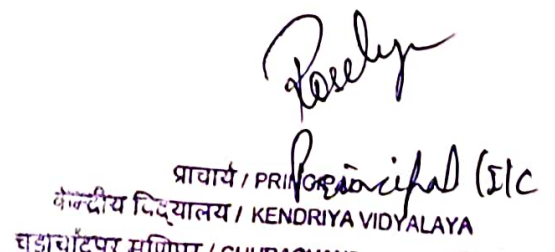 Roselyn
Principal (I/C
प्राचार्य / PRINCIPAL
केन्द्रीय विद्यालय / KENDRIYA VIDYALAYA
चुड़ाचाँदपुर मणिपुर /